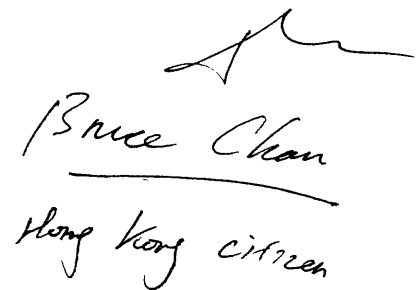 Bruce Chan
Hong Kong citizen